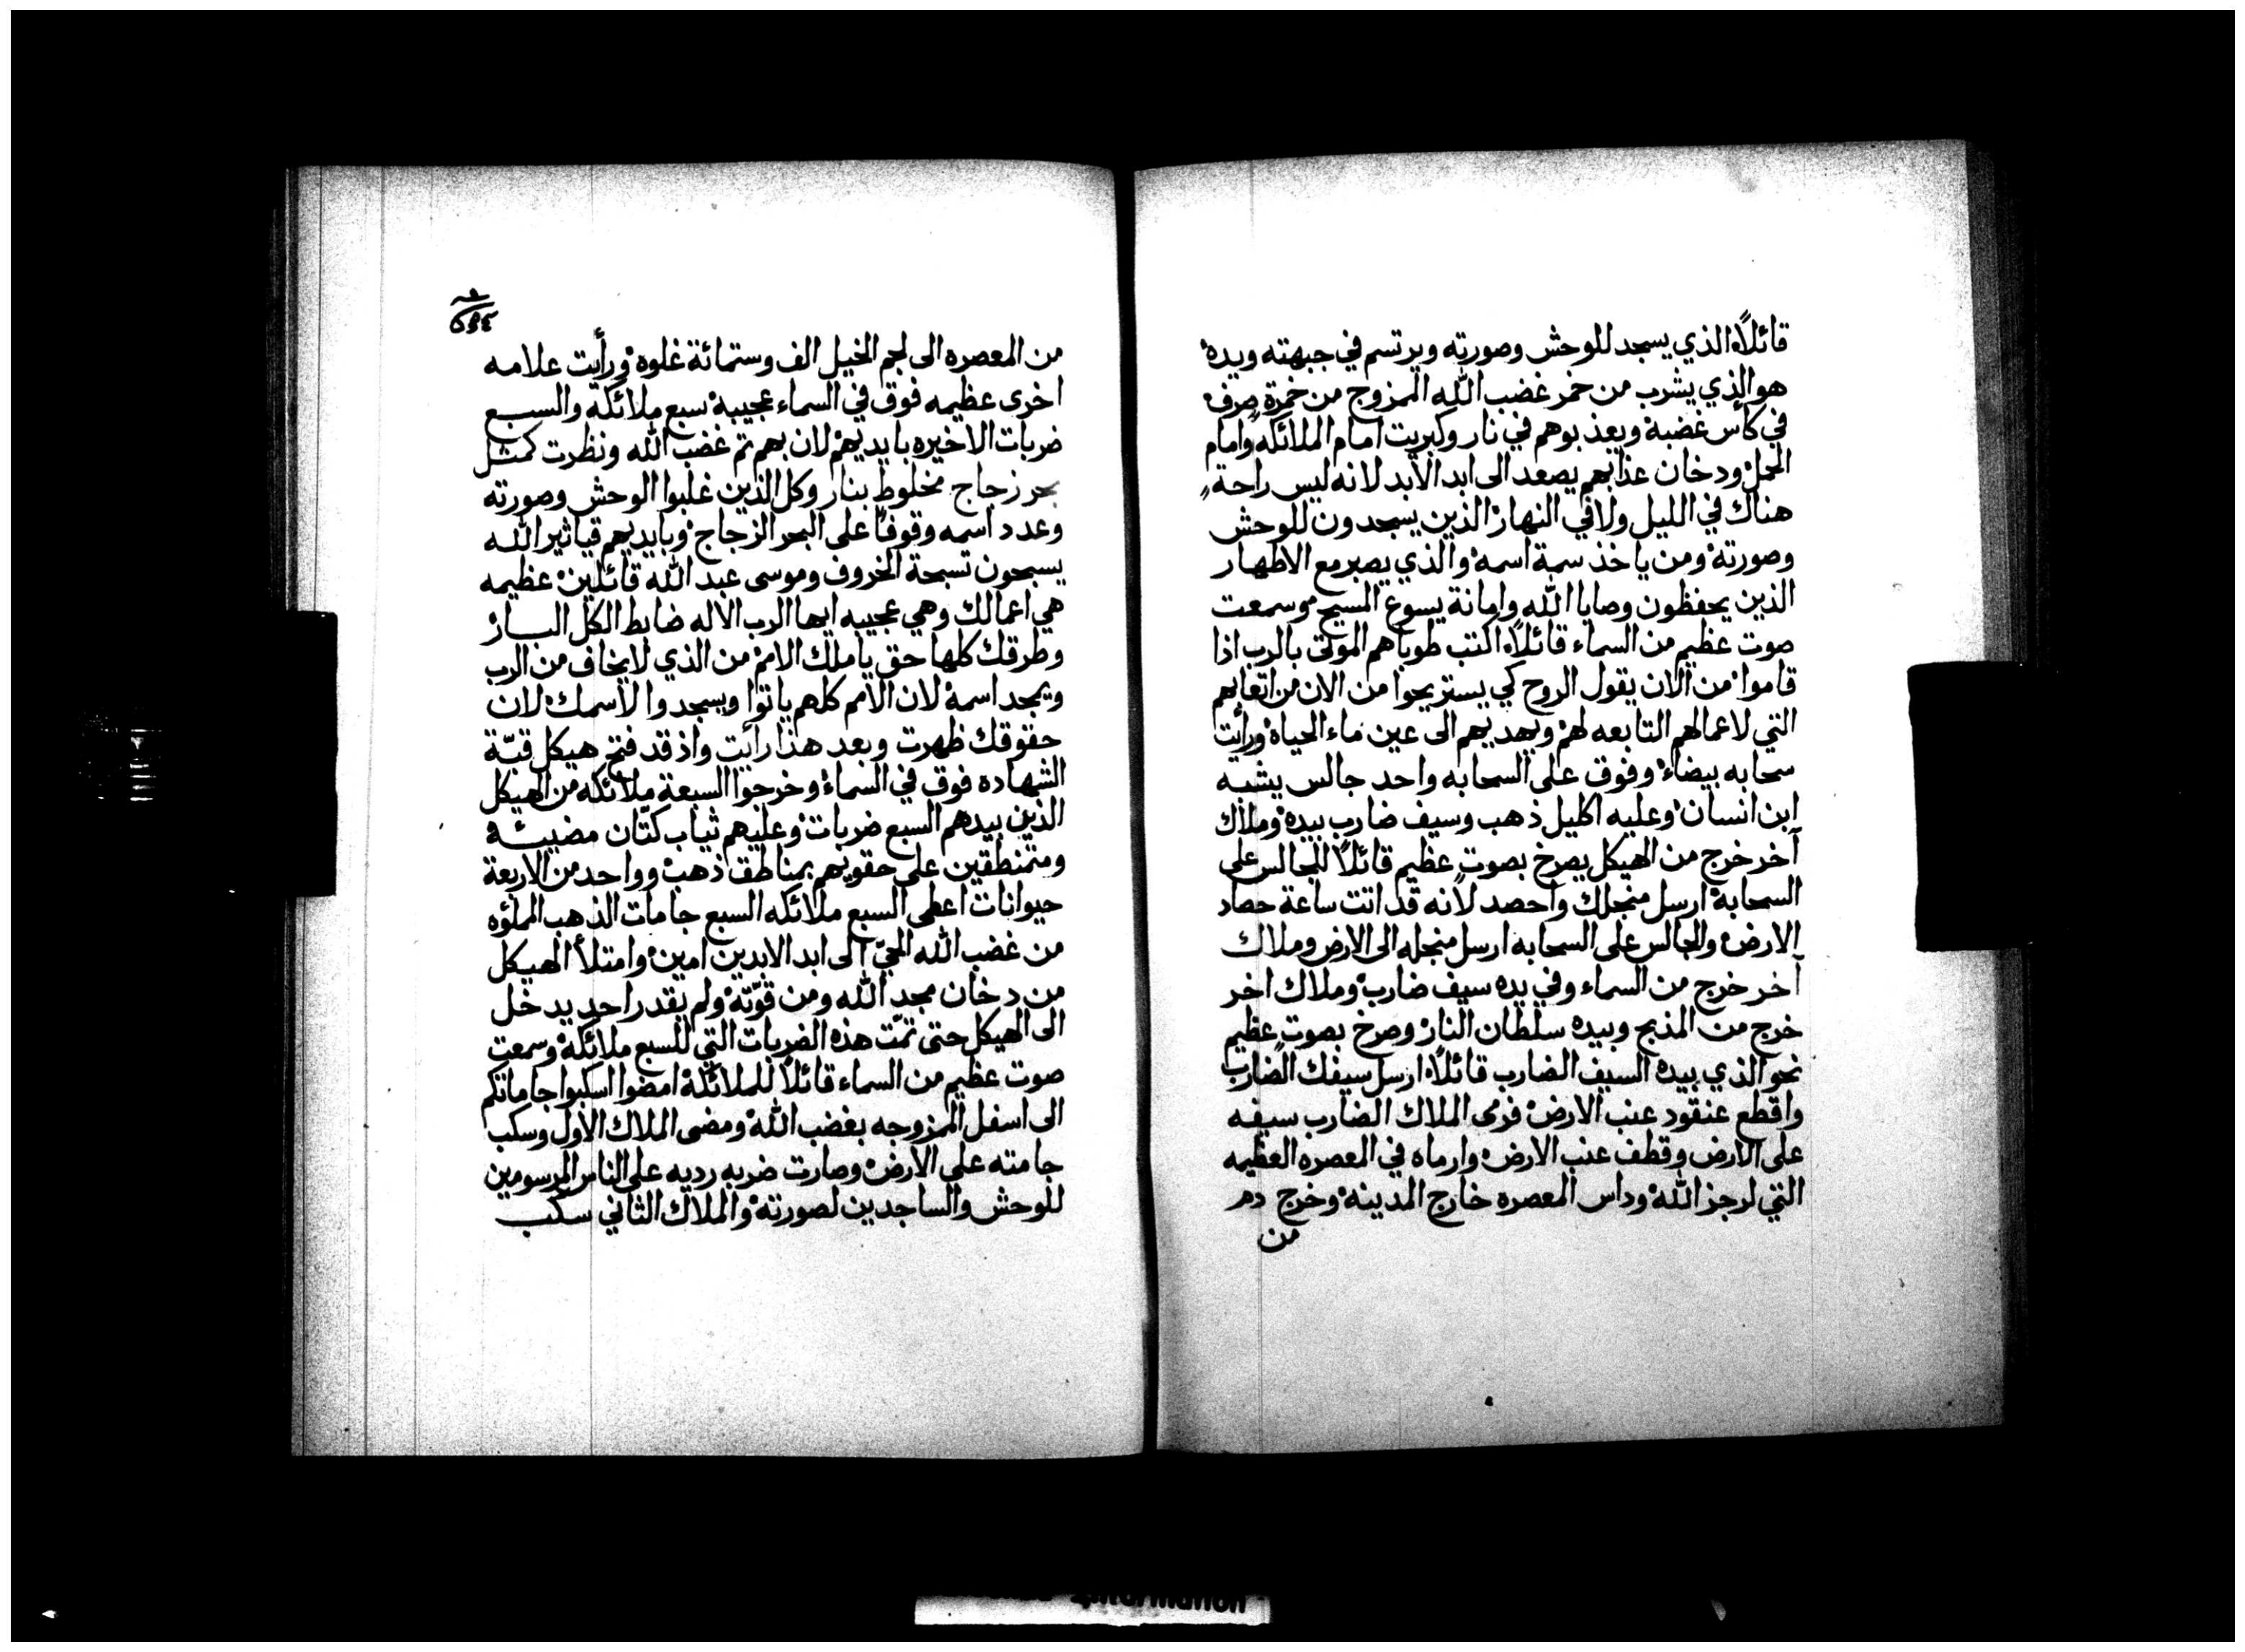 قائلاً الذي يسجد للوحش وصورته ويرتسم في جبهته ويده
هو الذي يشرب من خمر غضب الله الممزوج من خمرة صرف
في كأس غضبة ويعذبوهم في نار وكبريت امام الملائكه وامام
الحمل ودخان عذابهم يصعد الى ابد الابد لانه ليس راحة
هناك في الليل ولا في النهار الذين يسجدون للوحش
وصورته ومن ياخذ سمة اسمه والذي يصبر مع الاطهار
الذين يحفظون وصايا الله وامانة يسوع المسيح وسمعت
صوت عظيم من السماء قائلاً اكتب طوباهم الموتى بالرب اذا
قاموا من الان يقول الروح كي يستريحوا من الان من اتعابهم
التي لاعمالهم التابعه لهم ويهديهم الى عين ماء الحياة ورأيت
سحابه بيضاء وفوق على السحابه واحد جالس يشبه
ابن انسان وعليه اكليل ذهب وسيف ضارب بيده وملاك
آخر خرج من الهيكل يصرخ بصوت عظيم قائلاً للجالس على
السحابة ارسل منجلك واحصد لأنه قد اتت ساعة حصاد
الارض والجالس على السحابه ارسل منجله الى الارض وملاك
آخر خرج من السماء وفي يده سيف ضارب وملاك اخر
خرج من المذبح وبيده سلطان النار وصرخ بصوت عظيم
نحو الذي بيده السيف الضارب قائلاً ارسل سيفك الضارب
واقطع عنقود عنب الارض فرمى الملاك الضارب سيفه
على الارض وقطف عنب الارض وارماه في المعصره العظيمه
التي لرجز الله وداس المعصره خارج المدينه وخرج دم
من
من المعصره الى لجم الخيل الف وستمائة غلوه ورأيت علامه
اخرى عظيمه فوق في السماء عجيبة سبع ملائكة والسبع
ضربات الاخيره بايديهم لان بهم تم غضب الله ونظرت كمثل
بحر زجاج مخلوط بنار وكل الذين غلبوا الوحش وصورته
وعدد اسمه وقوفاً على البحر الزجاج وبايديهم قياثير الله
يسبحون تسبحة الخروف وموسى عبد الله قائلين عظيمه
هي اعمالك وهي عجيبه ايها الرب الاله ضابط الكل البار
وطرقك كلها حق يا ملك الامم من الذي لا يخاف من الرب
ويمجد اسمه لان الامم كلهم ياتوا ويسجدوا لاسمك لان
حقوقك ظهرت وبعد هذا رأيت واذ قد فتح هيكل قبّة
الشهاده فوق في السماء وخرجوا السبعة ملائكه من الهيكل
الذين بيدهم السبع ضربات وعليهم ثياب كتان مضيئة
ومتمنطقين على حقويهم بمناطق ذهب وواحد من الاربعة
حيوانات اعطى السبع ملائكه السبع جامات الذهب المملؤه
من غضب الله الحيّ الى ابد الابدين امين وامتلأ الهيكل
من دخان مجد الله ومن قوّته ولم يقدر احد يدخل
الى الهيكل حتى تمّت هذه الضربات التي للسبع ملائكة وسمعت
صوت عظيم من السماء قائلاً للملائكة امضوا اسكبوا جاماتكم
الى اسفل الممزوجه بغضب الله ومضى الملاك الاول وسكب
جامته على الارض وصارت ضربه رديه على الناس المرسومين
للوحش والساجدين لصورته والملاك الثاني سكب